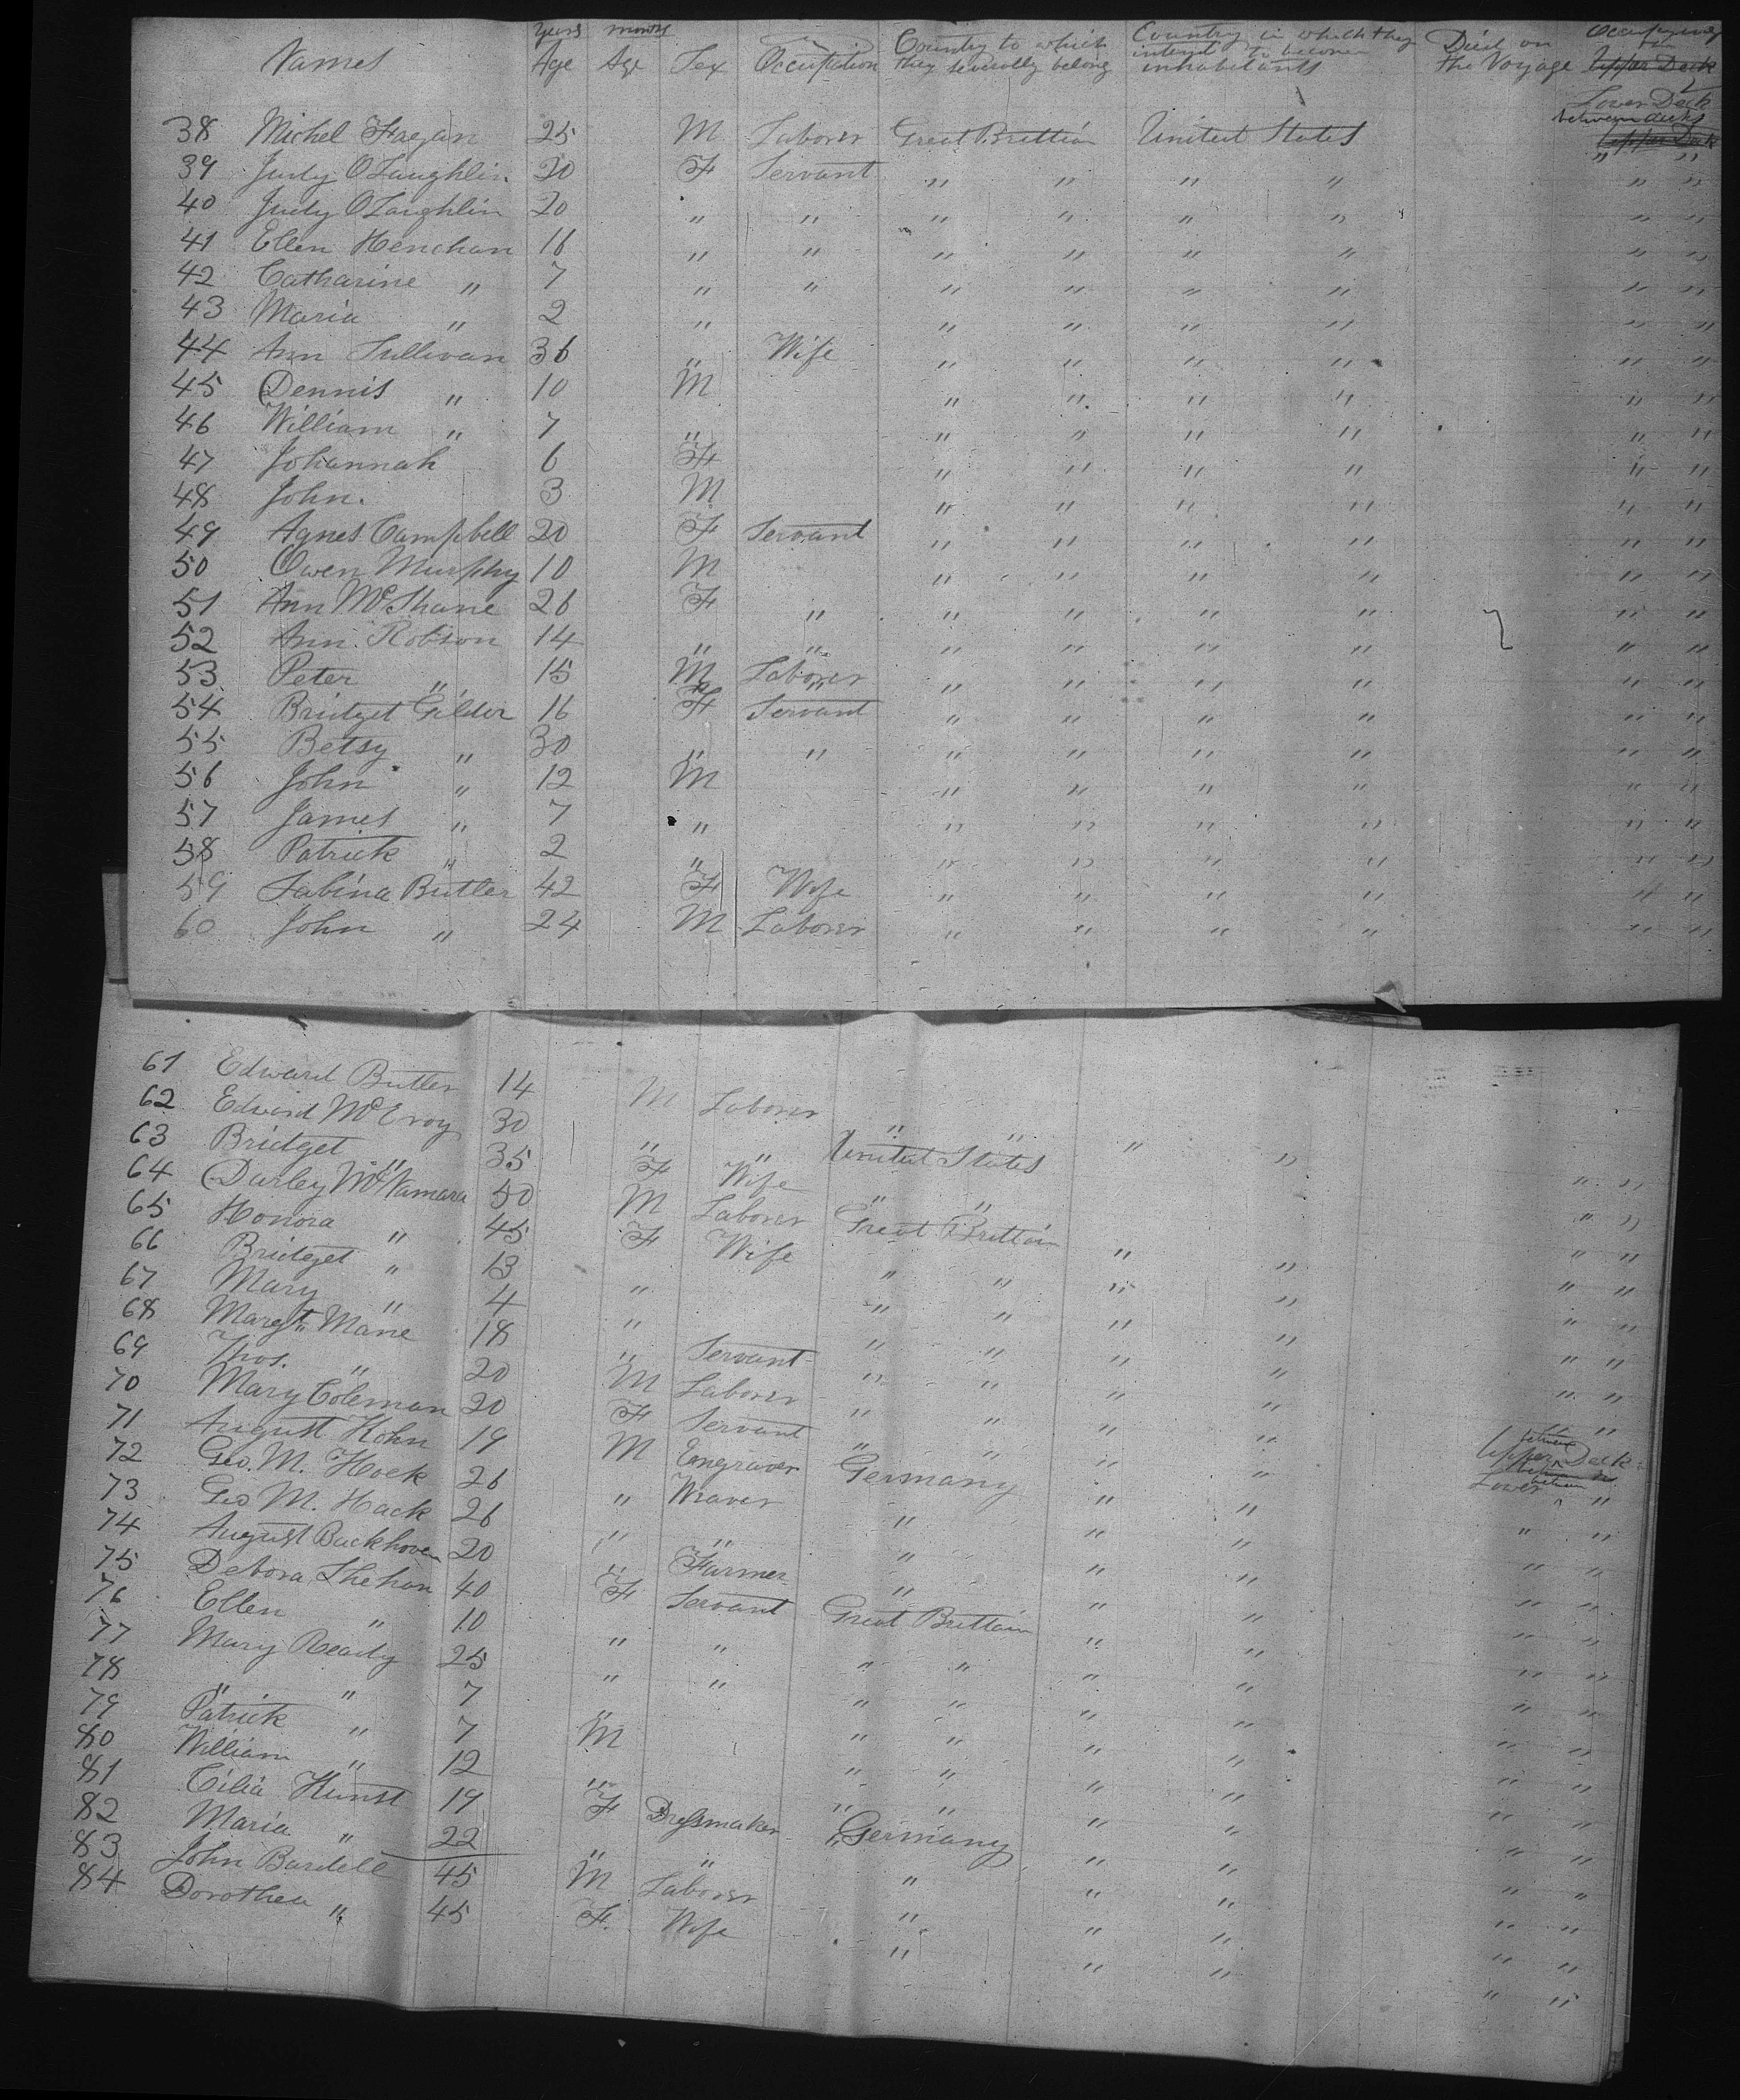 Names Years Age months Age Sex Occupation Country to which they severally belong Country in which they intend to become inhabitants Died on the Voyage Occupying Upper Deck
Lower Deck
between decks
38 Michel Fregan 25 M Laborer Great Brittain United States Upper Deck
39 Judy O'Laughlin 20 F Servant " " " " " "
40 Judy O'Laughlin 20 " " " " " " " "
41 Ellen Henehan 16 " " " " " " " "
42 Catharine " 7 " " " " " " " "
43 Maria " 2 " " " " " " "
44 Ann Sullivan 36 " Wife " " " " " "
45 Dennis " 10 M " " " " " "
46 William " 7 " " " " " " "
47 Johannah 6 F " " " " " "
48 John. 3 M " " " " " "
49 Agnes Campbell 20 F Servant " " " " " "
50 Owen Murphy 10 M " " " " " "
51 Ann McShane 26 F " " " " " " "
52 Ann Robson 14 " " " " " " " "
53 Peter " 15 M Laborer " " " " " "
54 Bridget Gilder 16 F Servant " " " " " "
55 Betsy " 30 " " " " " " " "
56 John " 12 M " " " " " "
57 James " 7 " " " " " " "
58 Patrick " 2 " " " " " " "
59 Sabina Butler 42 F Wife " " " " " "
60 John " 24 M Laborer " " " " " "
61 Edward Butler 14 M Laborer " " " "
62 Edward McEvoy 30 " " United States
63 Bridget " 35 F Wife " " " "
64 Darley McNamara 50 M Laborer Great Brittain " "
65 Honora " 45 F Wife " " " " " "
66 Bridget " 13 " " " " " " "
67 Mary " 4 " " " " " " "
68 Margt. Mane 18 " Servant " " " " " "
69 Thos. " 20 M Laborer " " " " " "
70 Mary Coleman 20 F Servant " " " " "
71 August Kohn 19 M Engraver Germany " " Upper between Deck
72 Geo. M. Hock 26 " Weaver " " " Lower between "
73 Geo M. Hack 26 " " " " " " "
74 August Buckhoven 20 " Farmer " " " " "
75 Debora Shehan 40 F Servant Great Brittain " " " "
76 Ellen " 10 " " " " " " " "
77 Mary Ready 25 " " " " " " " "
78 " " 7 " " " " " " "
79 Patrick " 7 M " " " " " "
80 William " 12 " " " " " " "
81 Cilia Hunst 19 F Dressmaker Germany " " " "
82 Maria " 22 " " " " " " "
83 John Bardell 45 M Laborer " " " " "
84 Dorothea " 45 F Wife " " " " "